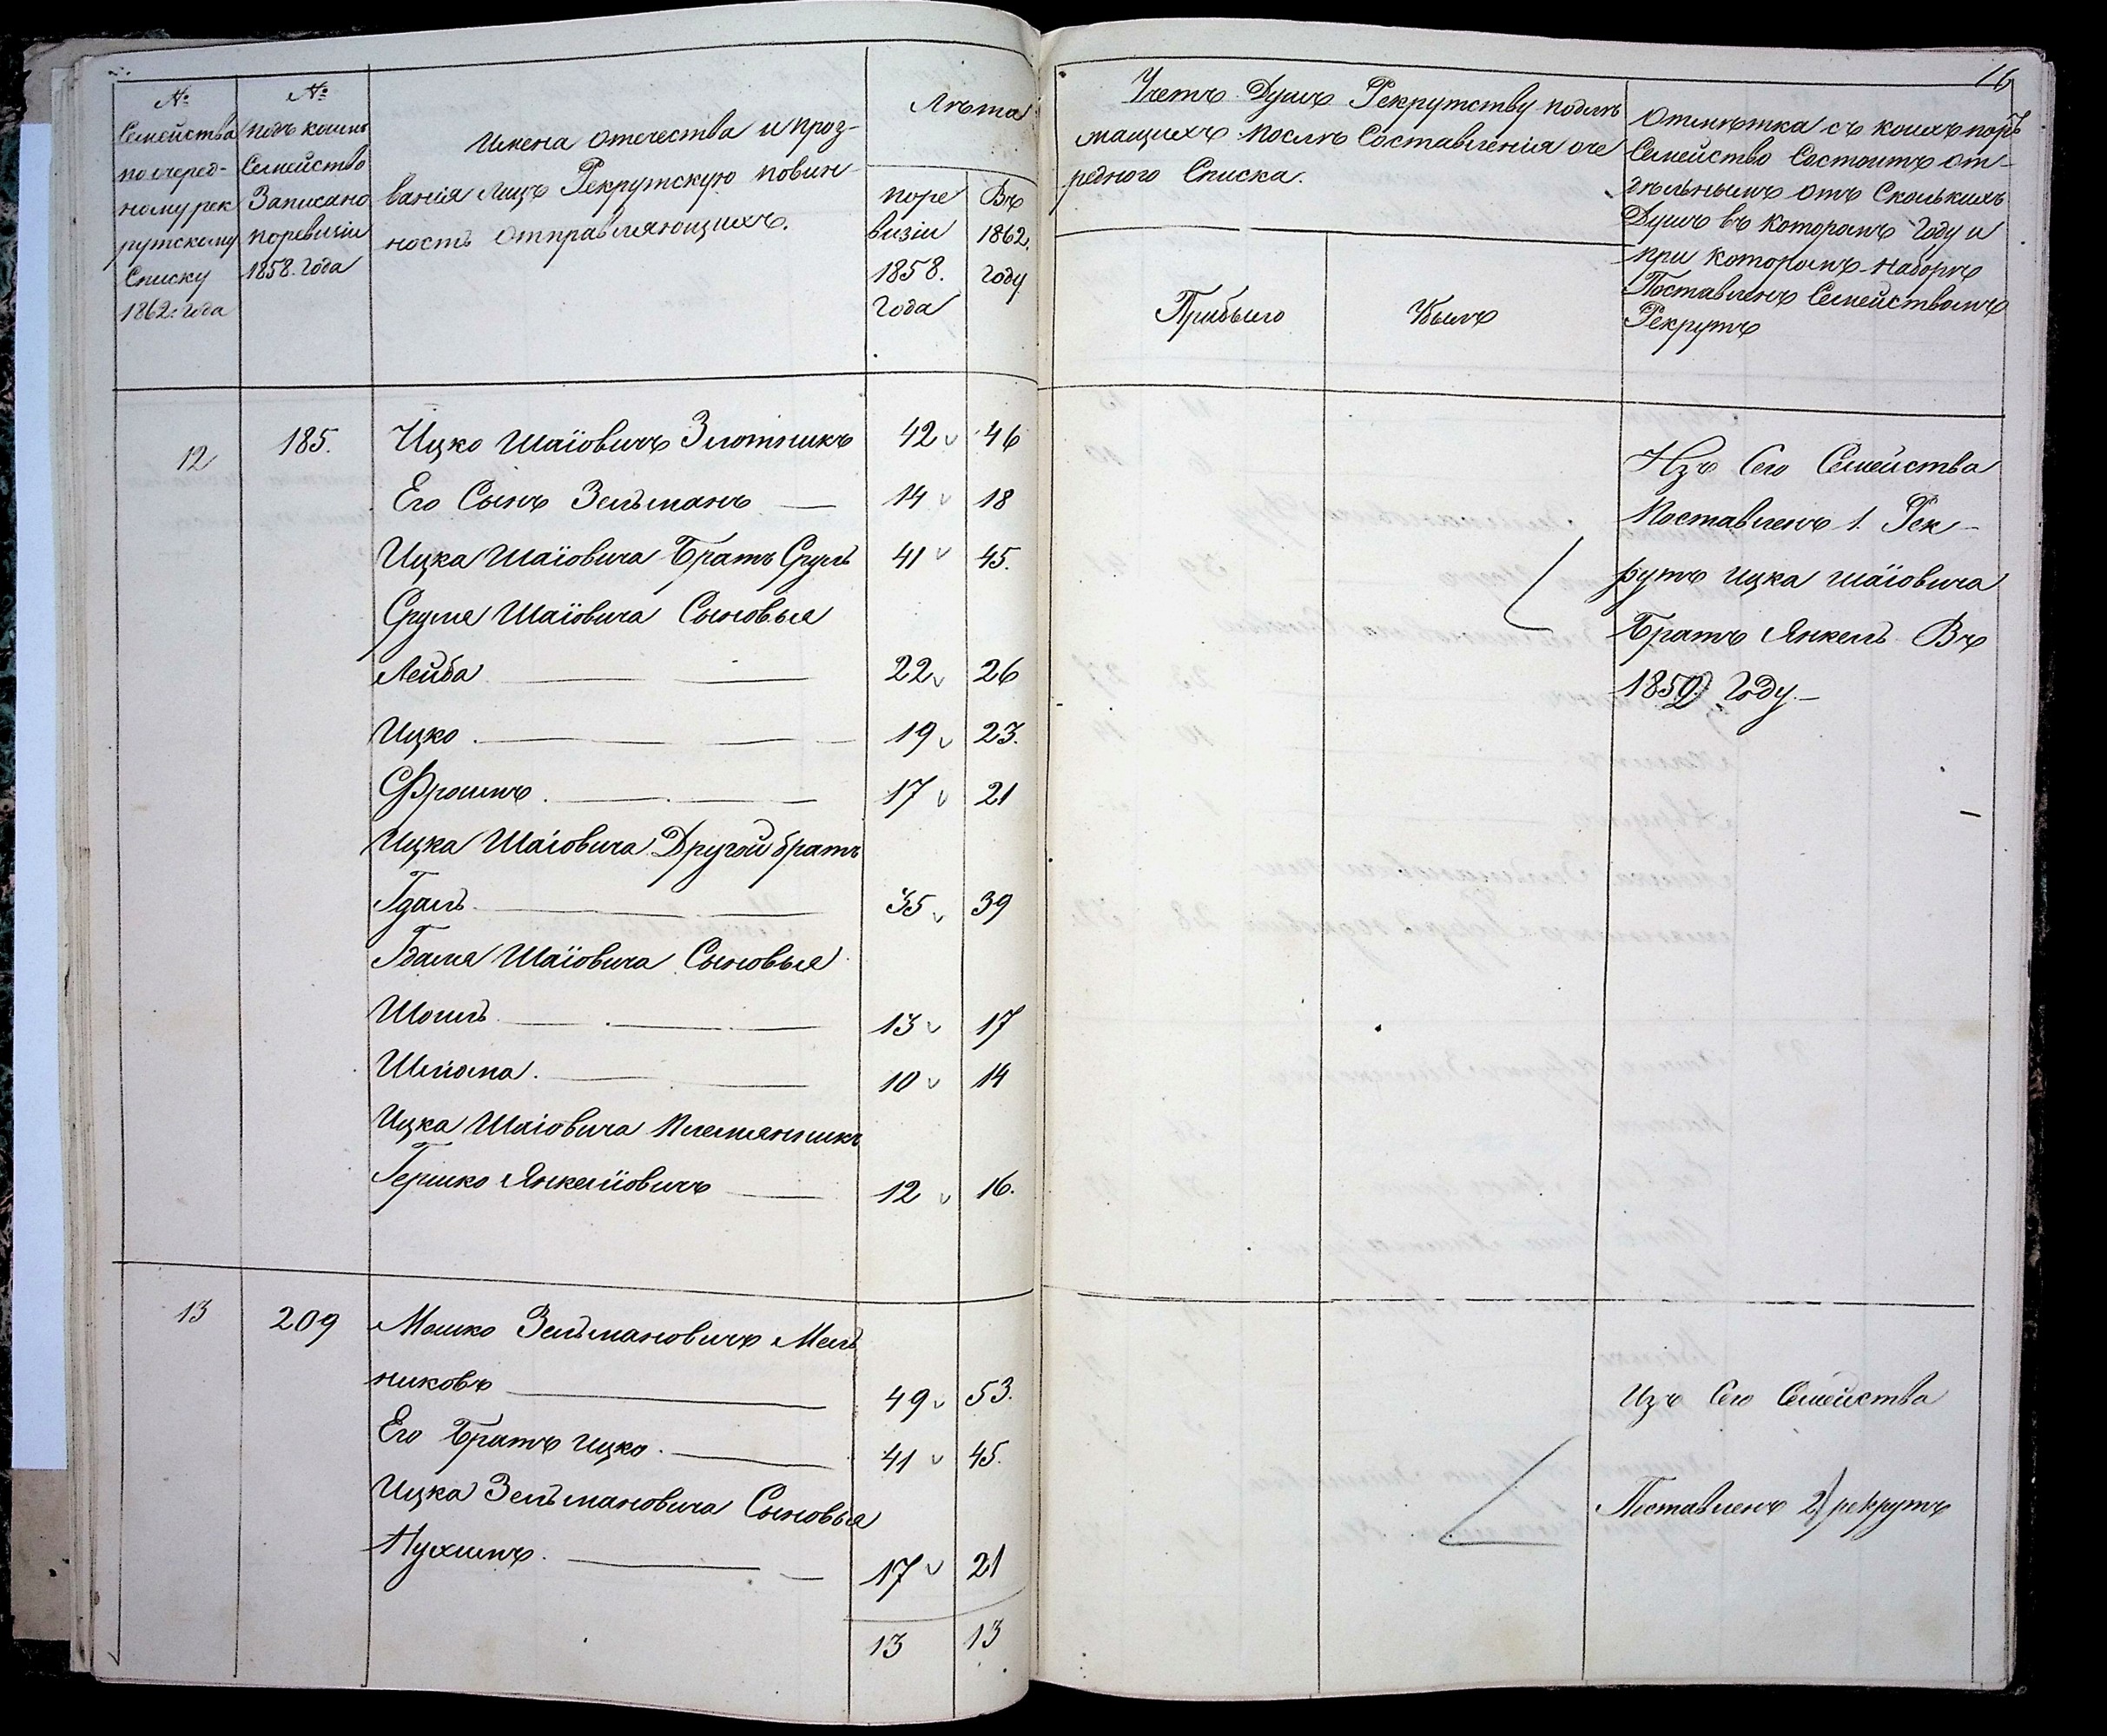 16
№
Семейства
по очеред-
ному рек
рутскому
Списку
1862: года
№
подъ коимъ
Семейство
Записано
по ревизіи
1858. года
Имена отечества и проз-
ванія Лицъ Рекрутскую повин-
ность отправляющихъ.
Лѣта
по ре
визіи
1858.
года
Въ
1862.
году
Учетъ Душъ Рекрутству подлѣ
жащихъ послѣ Составленія оче
редного Списка.
Прибыло
Убыло
Отмѣтка съ коихъ поръ
Семейство Состоитъ от-
дѣльнымъ отъ Сколькихъ
Душъ въ которомъ году и
при которомъ наборѣ
Поставленъ Семействомъ
Рекрутъ
12 185. Ицко Шаіовичъ Злотникъ 42 46
Его Сынъ Зельманъ — 14 18
Ицка Шаіовича Братъ Сруль 41 45.
Сруля Шаіовича Сыновья
Лейба 22 26
Ицко 19 23.
Фроимъ 17 21
Ицка Шаіовича Другой братъ
Гдаль 35 39
Гдаля Шаіовича Сыновья
Шоилъ 13 17
Шліома 10 14
Ицка Шаіовича Племянникъ
Гершко Янкеліовичъ 12 16.
Изъ Сего Семейства
Поставленъ 1. Рек-
рутъ Ицка Шаіовича
Братъ Янкель Въ
1859 Году.—
13 209 Мошко Зельмановичъ Мель
никовъ 49 53.
Его Братъ Ицко. 41 45.
Ицка Зельмановича Сыновья
Нухимъ. 17 21
13 13
Изъ Сего Семейства
Поставленъ 2) рекрутъ